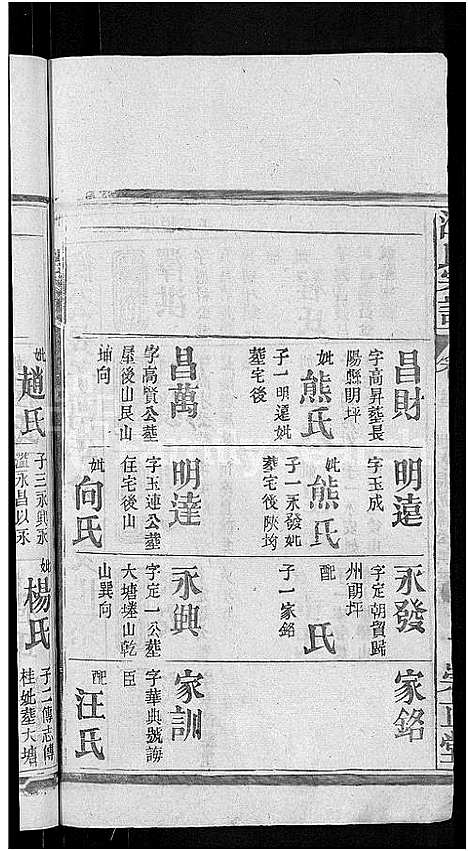 昌財
字高昇葬長
陽縣朋坪
妣熊氏
子一明遠妣
葬宅後
昌萬
字高質公葬
屋後山艮山
向
明遠
字玉成
妣熊氏
子一永發妣
葬宅後陝塆
明達
字玉連公葬
住宅後山
妣向氏
永發
字定朝貿歸
州朋坪
配 氏
子一家銘
永興
字定一公葬
大塘塝山乾
山巽向
家銘
家訓
字華典號誨
臣
配汪氏
妣趙氏
子三永興永
永昌以永
妣楊氏
子二傳志傳
桂妣葬大塘